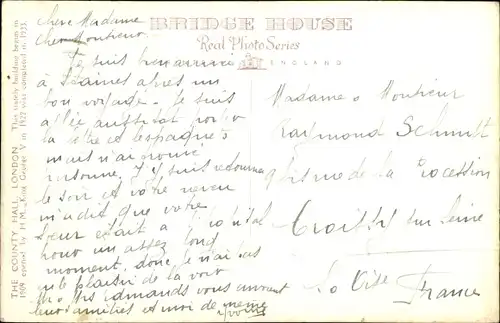 BRIDGE HOUSE
Real Photo Series
ENGLAND
THE COUNTY HALL, LONDON. This stately building begun in
1909 opened by H.M. King George V in 1922 was completed in 1933.
chere Madame
cher Monsieur
Je suis bien arrivé
à Staines après un
bon voyage. Je suis
allée aussitot
la lettre et
mais n'ai trouvé
personne. J'y suis retournée
le soir et votre neveu
m'a dit que votre
sœur était a l'hopital
pour un assez long
moment, donc je n'ai pas
eu le plaisir de la voir
Edmands vous envoient
leurs amitiés et moi de meme
Yvonne
Madame & Monsieur
Raymond Schmitt
de la Procession
Croissy sur Seine
France